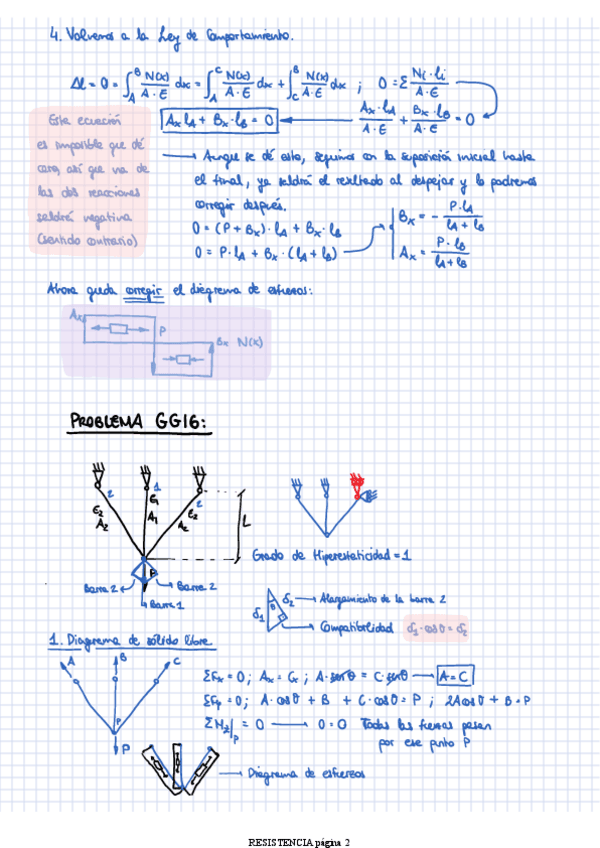 4. Volvemos a la Ley de Comportamiento.
Δl = 0 = ∫_A^B N(x)/(A·E) dx = ∫_A^C N(x)/(A·E) dx + ∫_C^B N(x)/(A·E) dx ; 0 = Σ Ni·li/(A·E)
Ax·lA + Bx·lB = 0 ← Ax·lA/(A·E) + Bx·lB/(A·E) = 0
Esta ecuación
es imposible que dé
cero, así que una de
las dos reacciones
saldrá negativa
(sentido contrario)
→ Aunque se dé esto, seguimos con la suposición inicial hasta
el final, ya saldrá el resultado al despejar y lo podremos
corregir después.
0 = (P + Bx)·lA + Bx·lB
0 = P·lA + Bx·(lA + lB)
Bx = - P·lA/(lA + lB)
Ax = P·lB/(lA + lB)
Ahora queda corregir el diagrama de esfuerzos:
Ax
P
Bx N(x)
PROBLEMA GG16:
2 1 2
E2 A2
E1 A1
E2 A2
L
P
Barra 2
Barra 2
Barra 1
Grado de Hiperestaticidad = 1
δ1 θ δ2 → Alargamiento de la barra 2
→ Compatibilidad δ1·cosθ = δ2
1. Diagrama de sólido libre
A B C
P
P
ΣFx = 0; Ax = Cx; A·senθ = C·senθ → A = C
ΣFy = 0; A·cosθ + B + C·cosθ = P; 2Acosθ + B = P
ΣMz|P = 0 → 0 = 0 Todas las fuerzas pasan
por ese punto P
→ Diagrama de esfuerzos
RESISTENCIA página 2